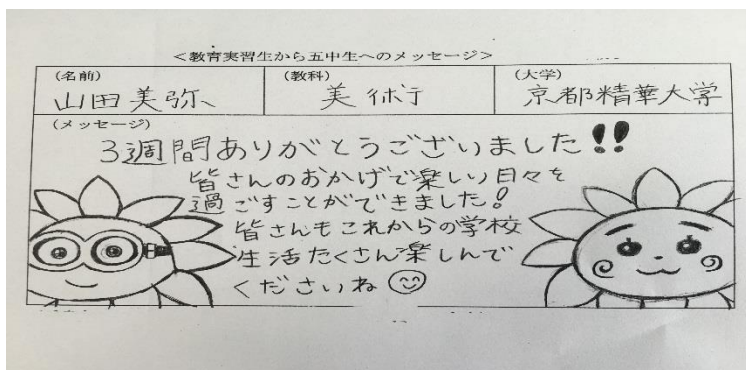 <教育実習生から五中生へのメッセージ>
(名前) (教科) (大学)
山田美弥 美術 京都精華大学
(メッセージ)
3週間ありがとうございました!!
皆さんのおかげで楽しい日々を
過ごすことができました!
皆さんもこれからの学校
生活たくさん楽しんで
くださいね